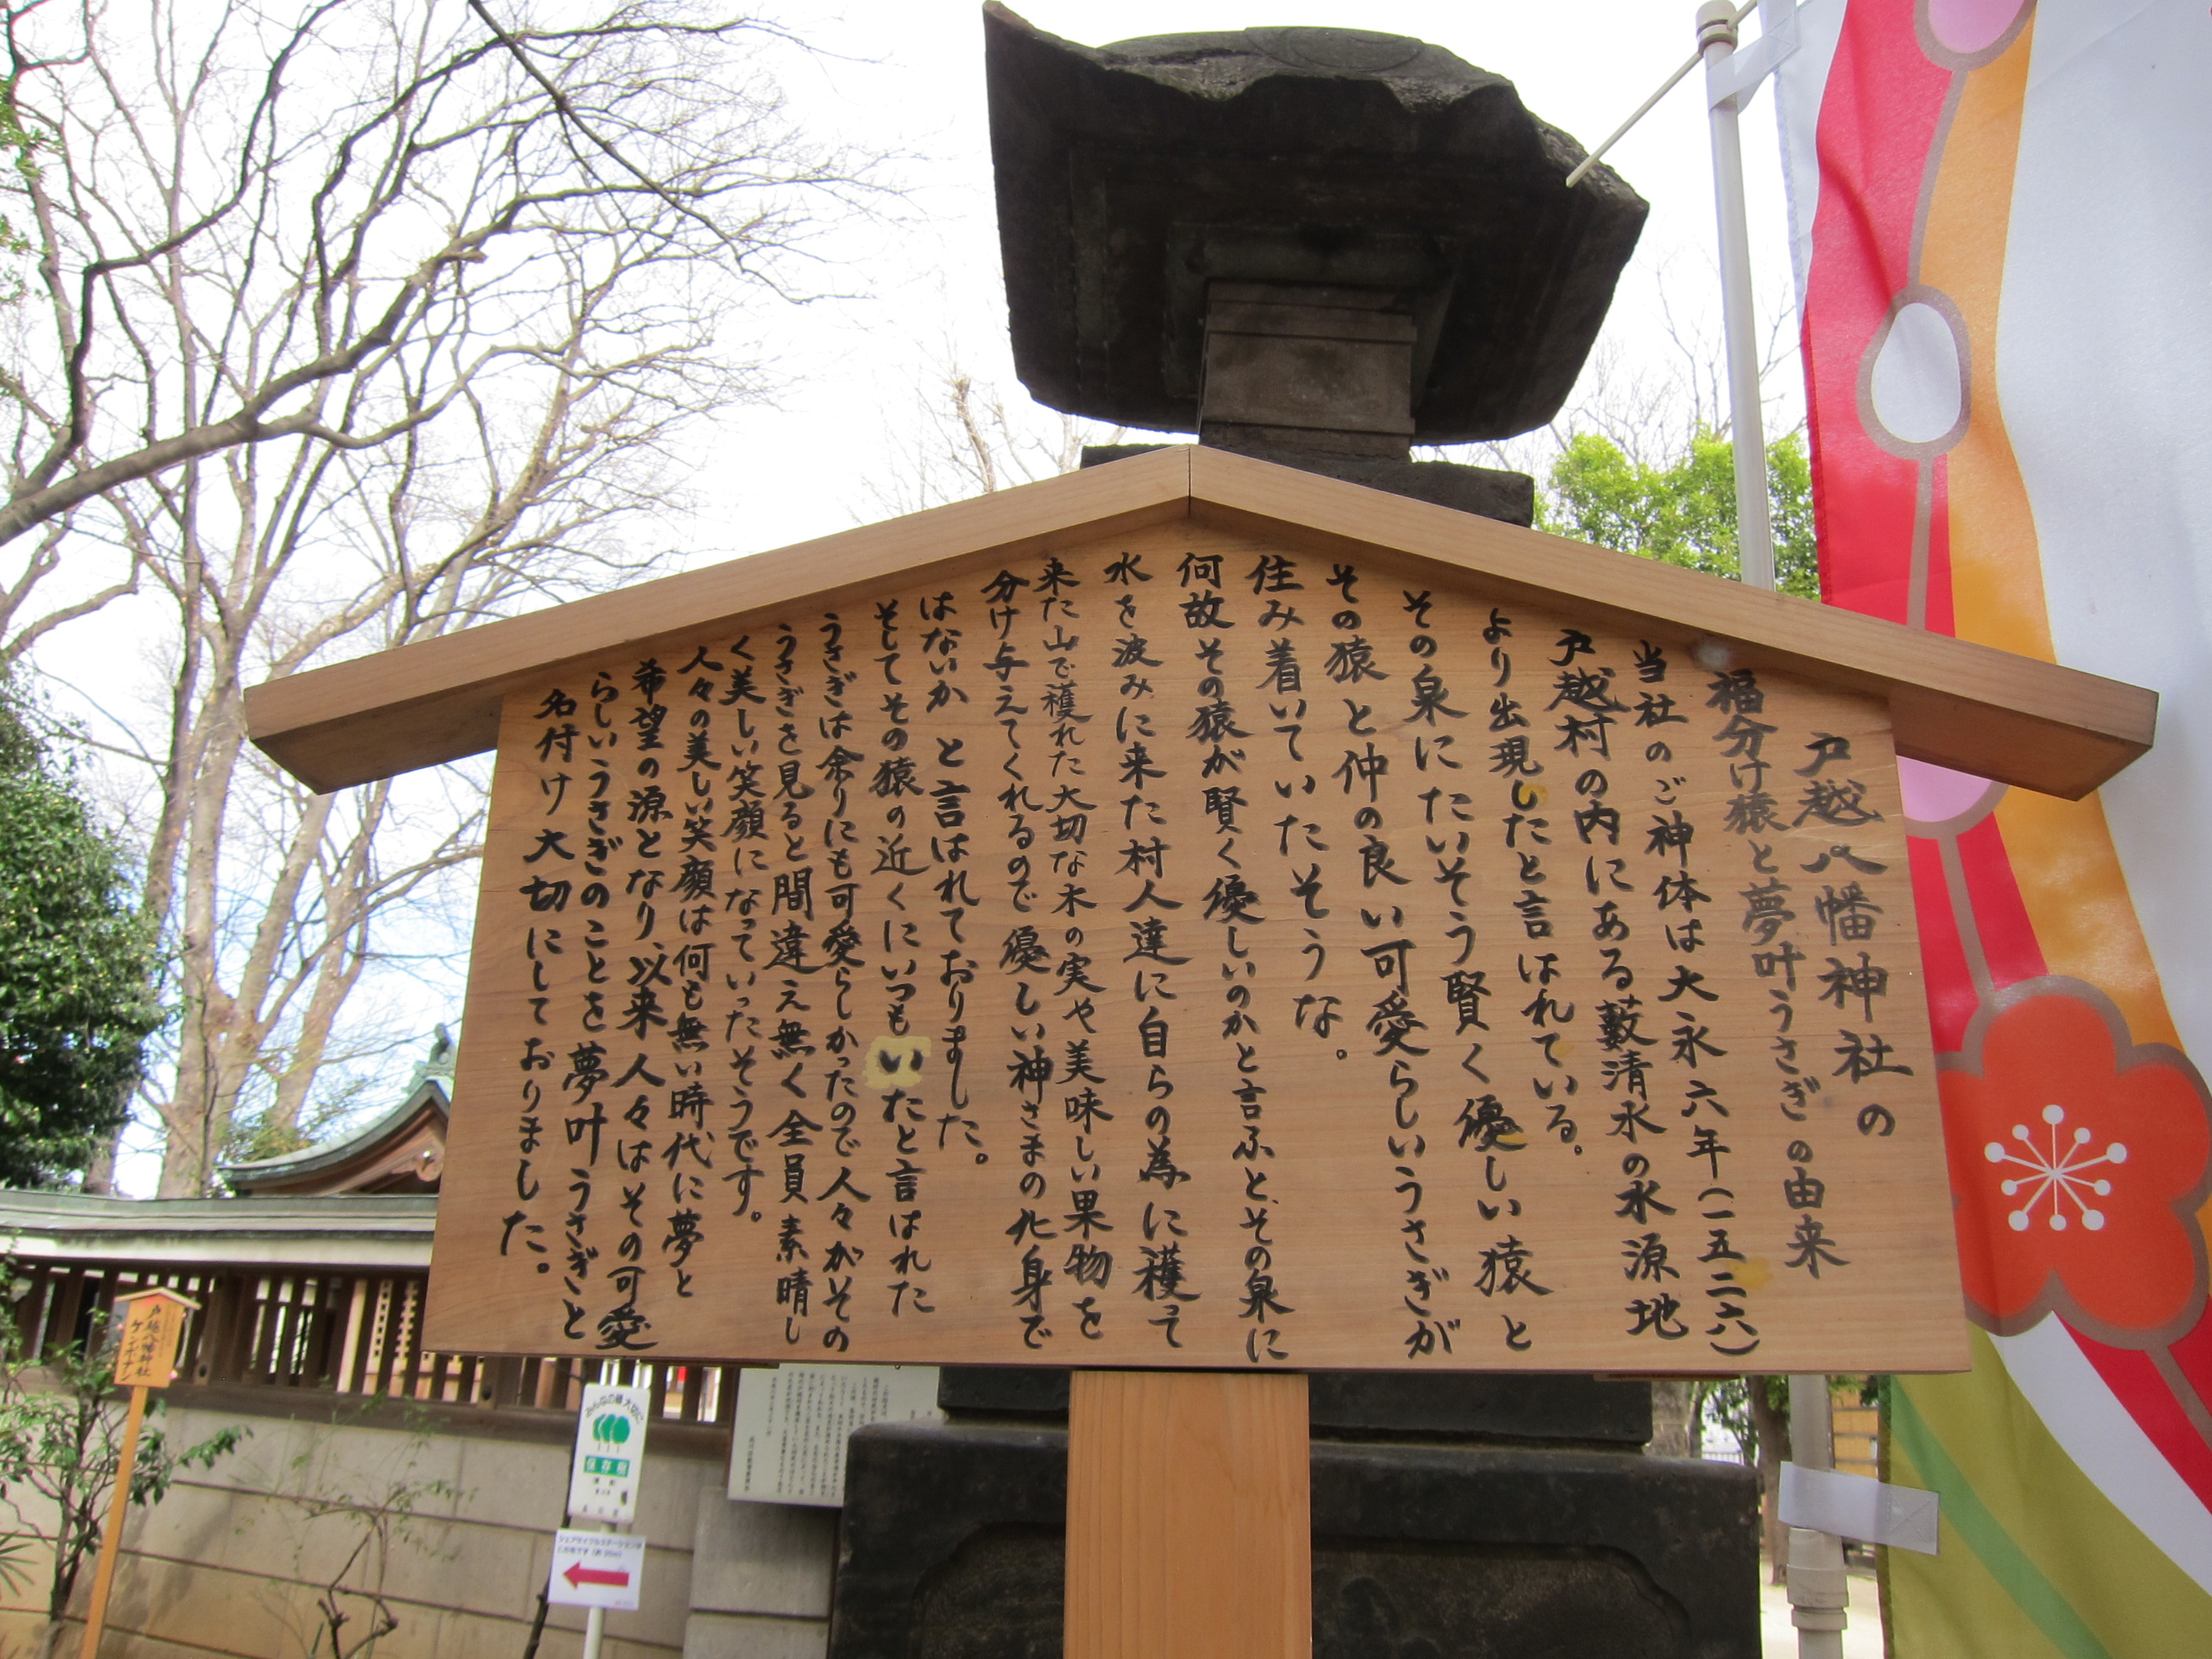 戸越八幡神社の
福分け猿と夢叶うさぎの由来
当社のご神体は大永六年(一五二六)
戸越村の内にある藪清水の水源地
より出現したと言はれている。
その泉にたいそう賢く優しい猿と
その猿と仲の良い可愛らしいうさぎが
住み着いていたそうな。
何故その猿が賢く優しいのかと言ふと、その泉に
水を波みに来た村人達に自らの為に穫って
来た山で穫れた大切な木の実や美味しい果物を
分け与えてくれるので優しい神さまの化身で
はないかと言はれておりました。
そしてその猿の近くにいつもいたと言はれた
うさぎは余りにも可愛らしかったので人々がその
うさぎを見ると間違え無く全員素晴し
く美しい笑顔になっていったそうです。
人々の美しい笑顔は何も無い時代に夢と
希望の源となり、以来人々はその可愛
らしいうさぎのことを夢叶うさぎと
名付け大切にしておりました。
戸越八幡神社
ケンポナシ
みんなの緑大切に
保存樹
シェアサイクルステーションは